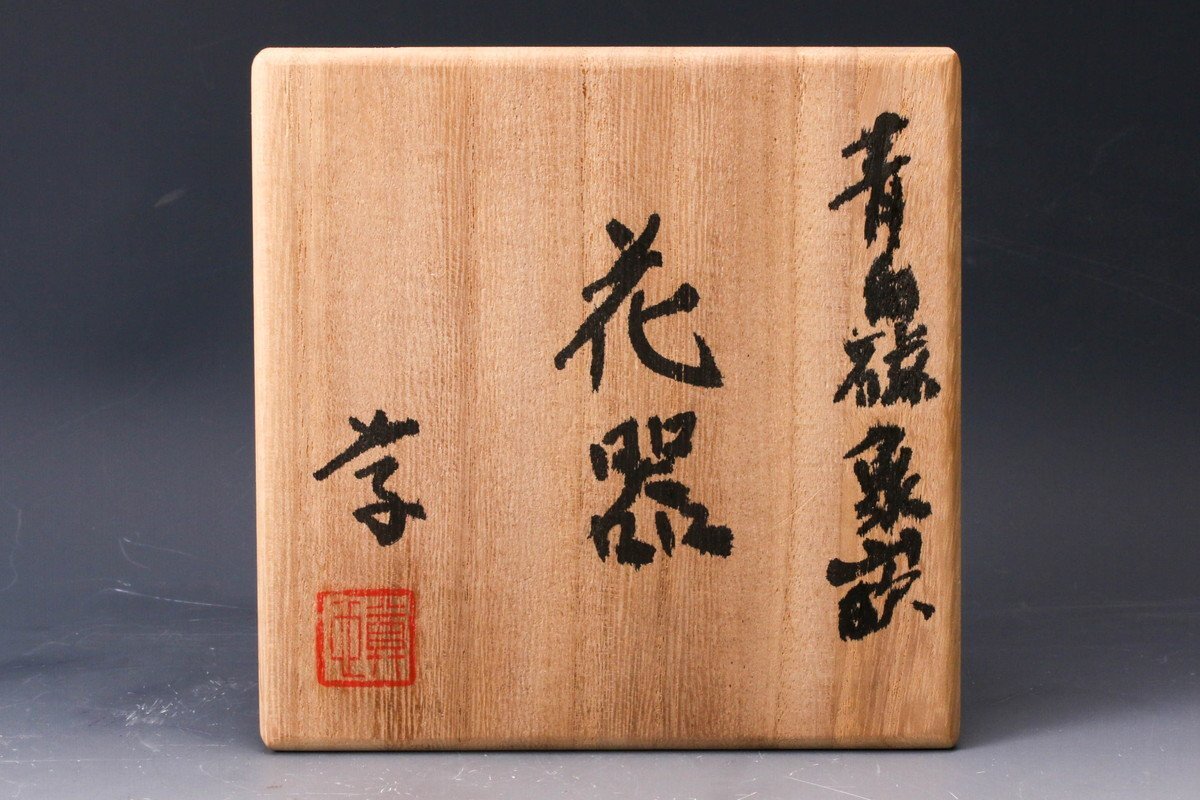 青白磁象嵌
花器
学